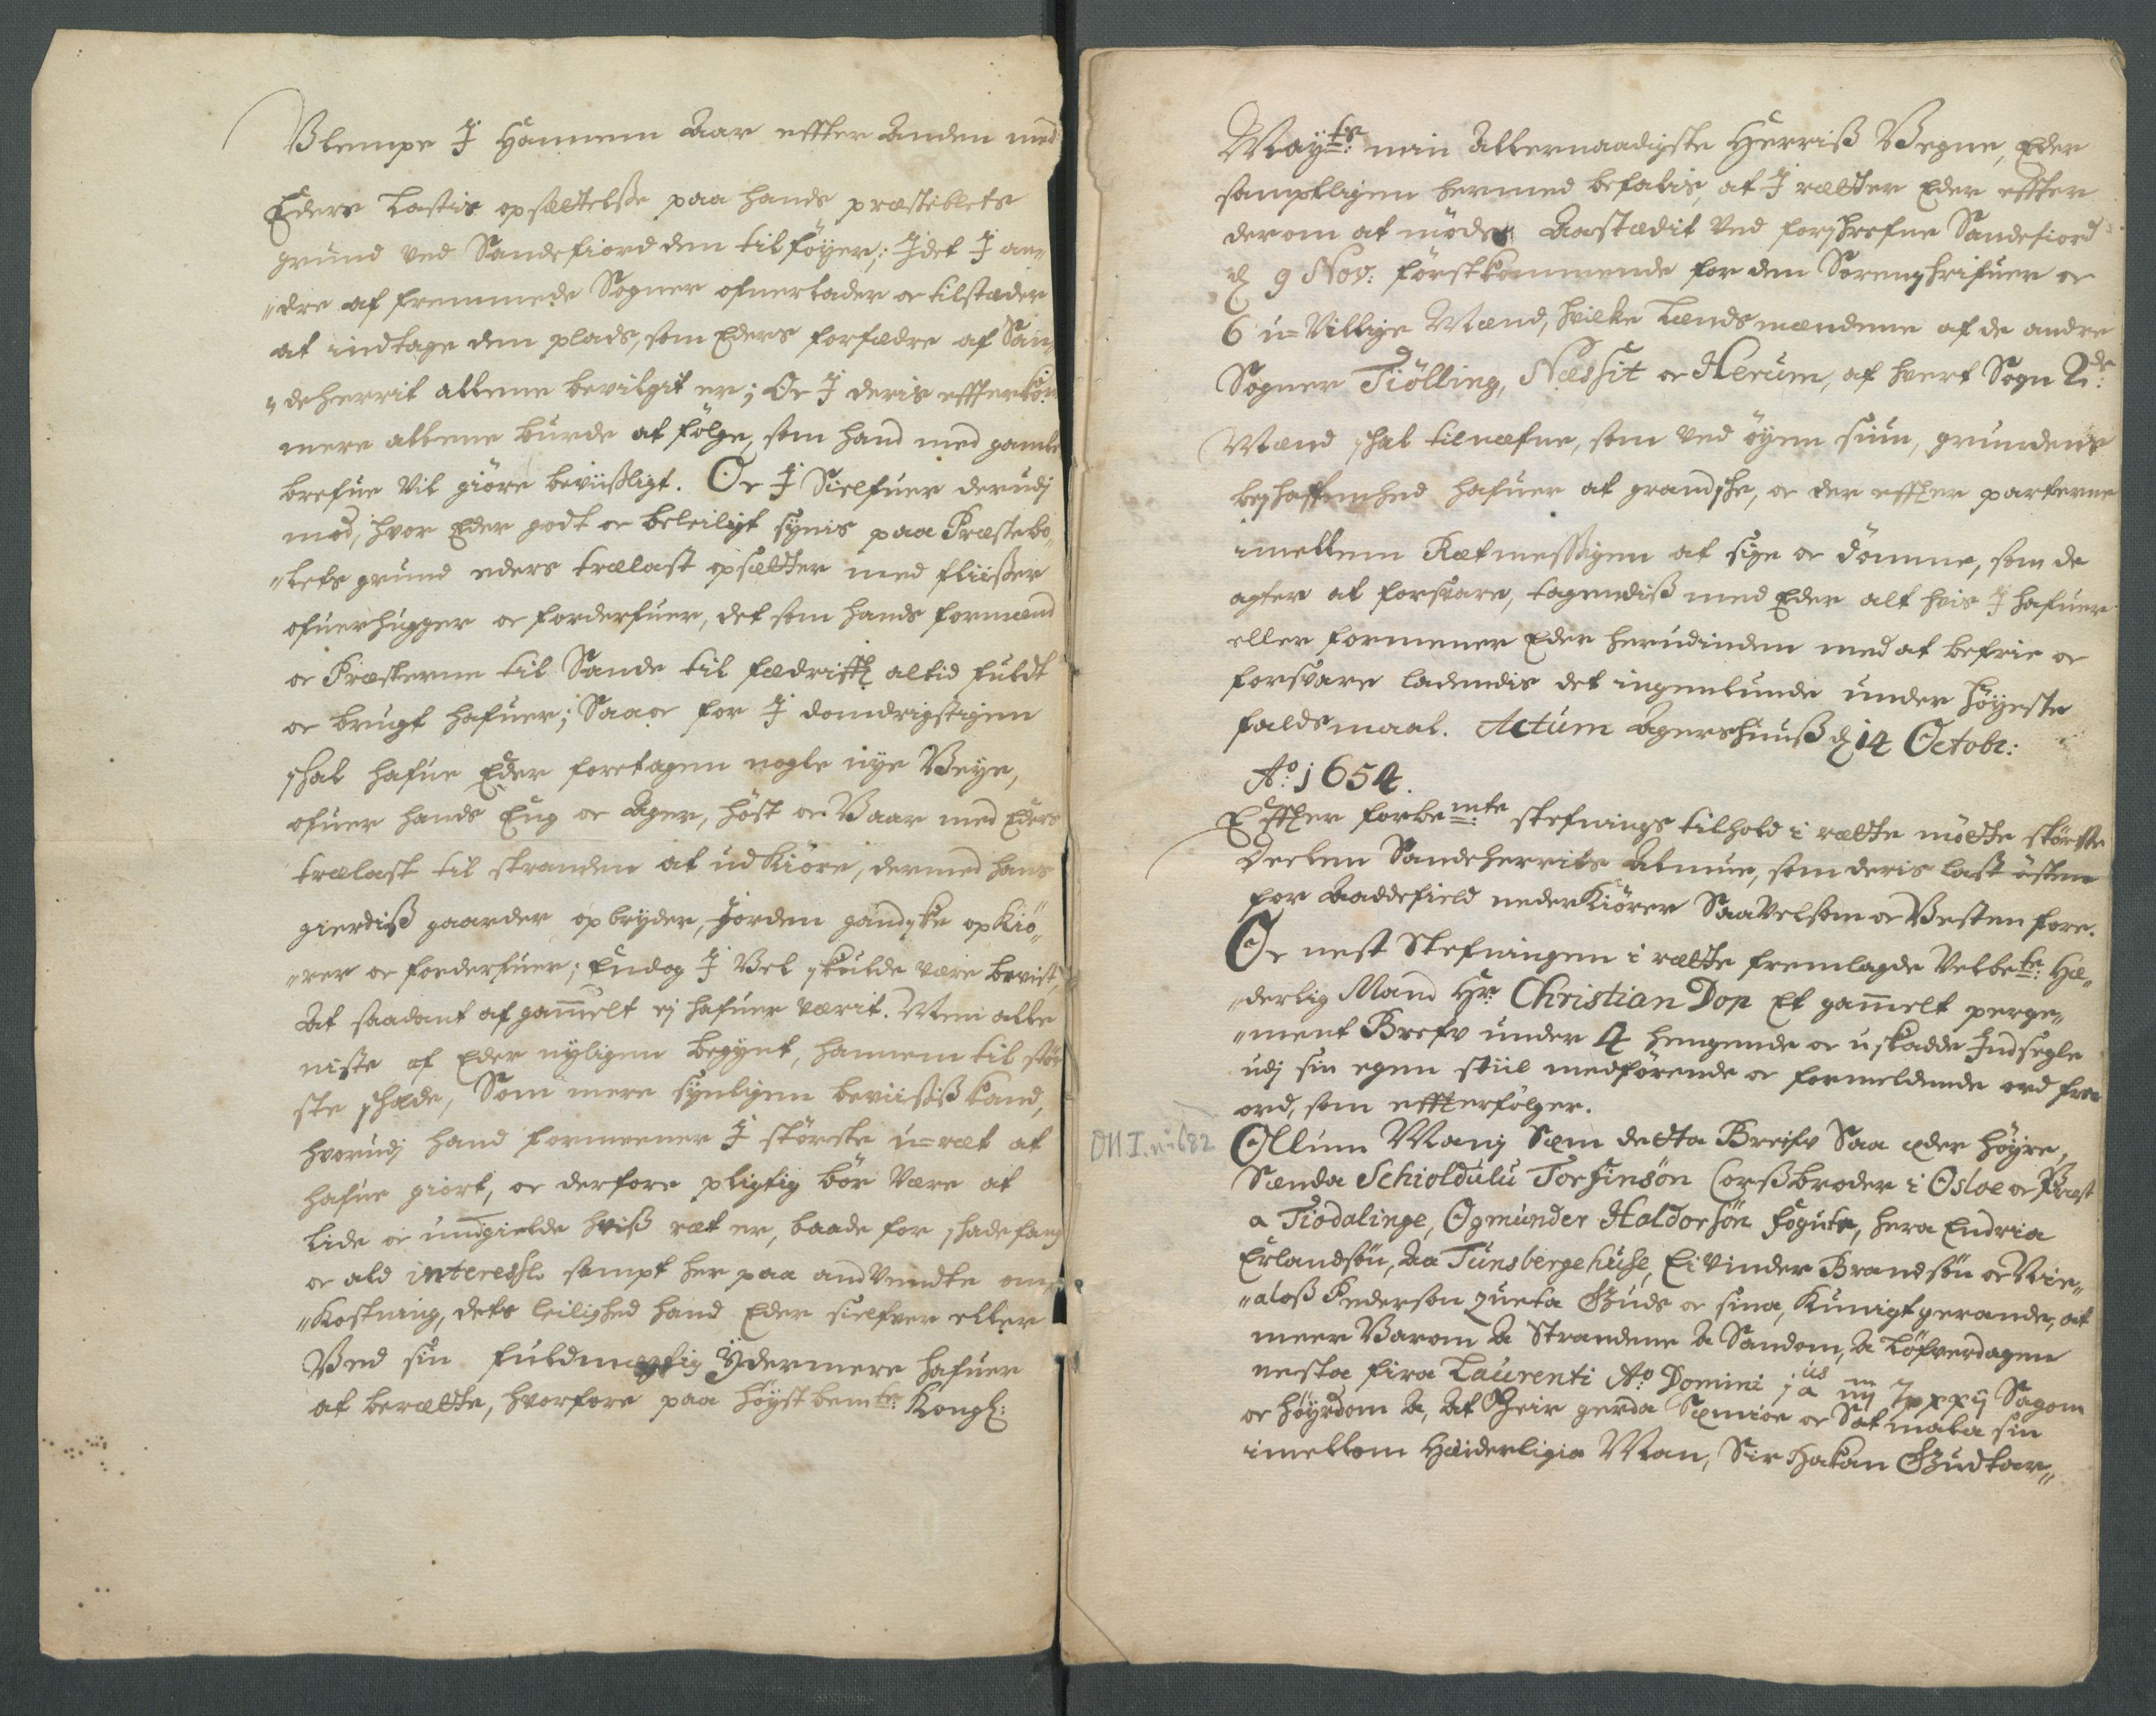 Ulempe I Hannem Aar effter Anden med
Eders Lastis opsættelsse paa hands præstebolets
grund ved Sandefiord dem tilføyer; Idet I an„
„dre af fremmede Sogner ofuerlader oc tilstæder
at indtage den plads, som Eders forfædre af San„
„deherrit allene bevilgit er; Oc I deris effterkom
mere allene burde at følge, som hand med gamle
brefue vil giøre beviisligt. Oc I Sielfuer derudj
mod, hvor Eder godt oc beleiligt synis paa Præstebo„
„lets grund eders trælast opsætter med fliisser
ofuerhugger oc forderfuer, det som hands formænd
oc Præsterne til Sande til fædrifft altid fuldt
oc brugt hafuer; Saa oc for I domdrigstigen
schal hafue Eder foretagen nogle nye Veye,
ofuer hands Eng oc Ager, høst oc Vaar med Eders
trælast til stranden at udkiøre, dermed hans
gierdiß gaarder opbryder, Jorden gandske opkiø„
„rer oc forderfuer; Endog I Vel skulde være bevist,
At saadant af gam̅elt ej hafuer værit. Men alle
niste af Eder nyligen begynt, hannem til stør
ste schade, Som mere synligen beviisiß kand,
hvorudj hand formeener I største u=ræt at
hafue giort, oc derfore pligtig bør være at
lide oc undgielde hviß ræt er, baade for schadefang
oc ald interesse sampt her paa andvendte om„
„kostning, dets leilighed hand Eder sielfver eller
Ved sin fuldmegtig Ydermere hafuer
at berætte, hvorfore paa høyst bemte: Kongl:
Mayts: min Allernaadigste Herriß Vegne, Eder
samptligen hermed befalis, at I rætter Eder effter
derom at møde Aastædit ved forschrefne Sandefiord
d 9 Nov: førstkommende for den Sorenschrifuer oc
6 u=Villige Mænd, hvilke Lændsmændene af de andre
Sogner Tiølling, Næssit oc Hierum, af hvert Sogn 2de:
Mænd schal tilnæfne, som ved øyen siun, grundens
beschaffenhed hafuer at grandsche, oc der effter parterne
imellem Rætmessigen at sige oc dømme, som de
agter at forsvare, tagendiß med Eder alt hvis I hafuer
eller formener Eder herudinden med at befrie oc
forsvare ladendis det ingenlunde under høyeste
faldsmaal. Actum Agershuuß d 14 Octobr:
Ao: 1654.
Effter forbemte: stefnings tilhold i rætte mødte største
Deelen Sandeherrits Almue, som deris last østen
for Aaddefield nederkiører Saavelsom oc Vesten fore.
Oc nest Stefningen i rætte fremlagde velbete: Hæ„
„derlig Mand Hr: Christian Dop Et gam̅elt perge„
„ment Brefv under 4 hengende oc uskadde Indsegle
udj sin egen stiil medførende oc formeldende ord fra
ord, som effterfølger.
DN I. no 682
Ollum Manj Sem detta Breifv Saa eder høyre,
Sænda Schioldulu Torfinsøn Corßbroder i Osloe oc Præst
a Tiodalinge, Ogmunder Haldorsøn fogute, hera Endria
Erlandsøn, Aa Tunsbergehuse, Eivinder Brandsøn oc Nic„
„alaß Pederson queta Guds oc sina, kunigtgerande, at
meer Varom A Strandene A Sandom, A Løfverdagen
nesta fira Laurenti Ao Domini Sagom
oc høyrdom A, At Geir gerda Semioe oc Satmala sin
imellom Heiderligia Man, Sir Hakan Gudtor„